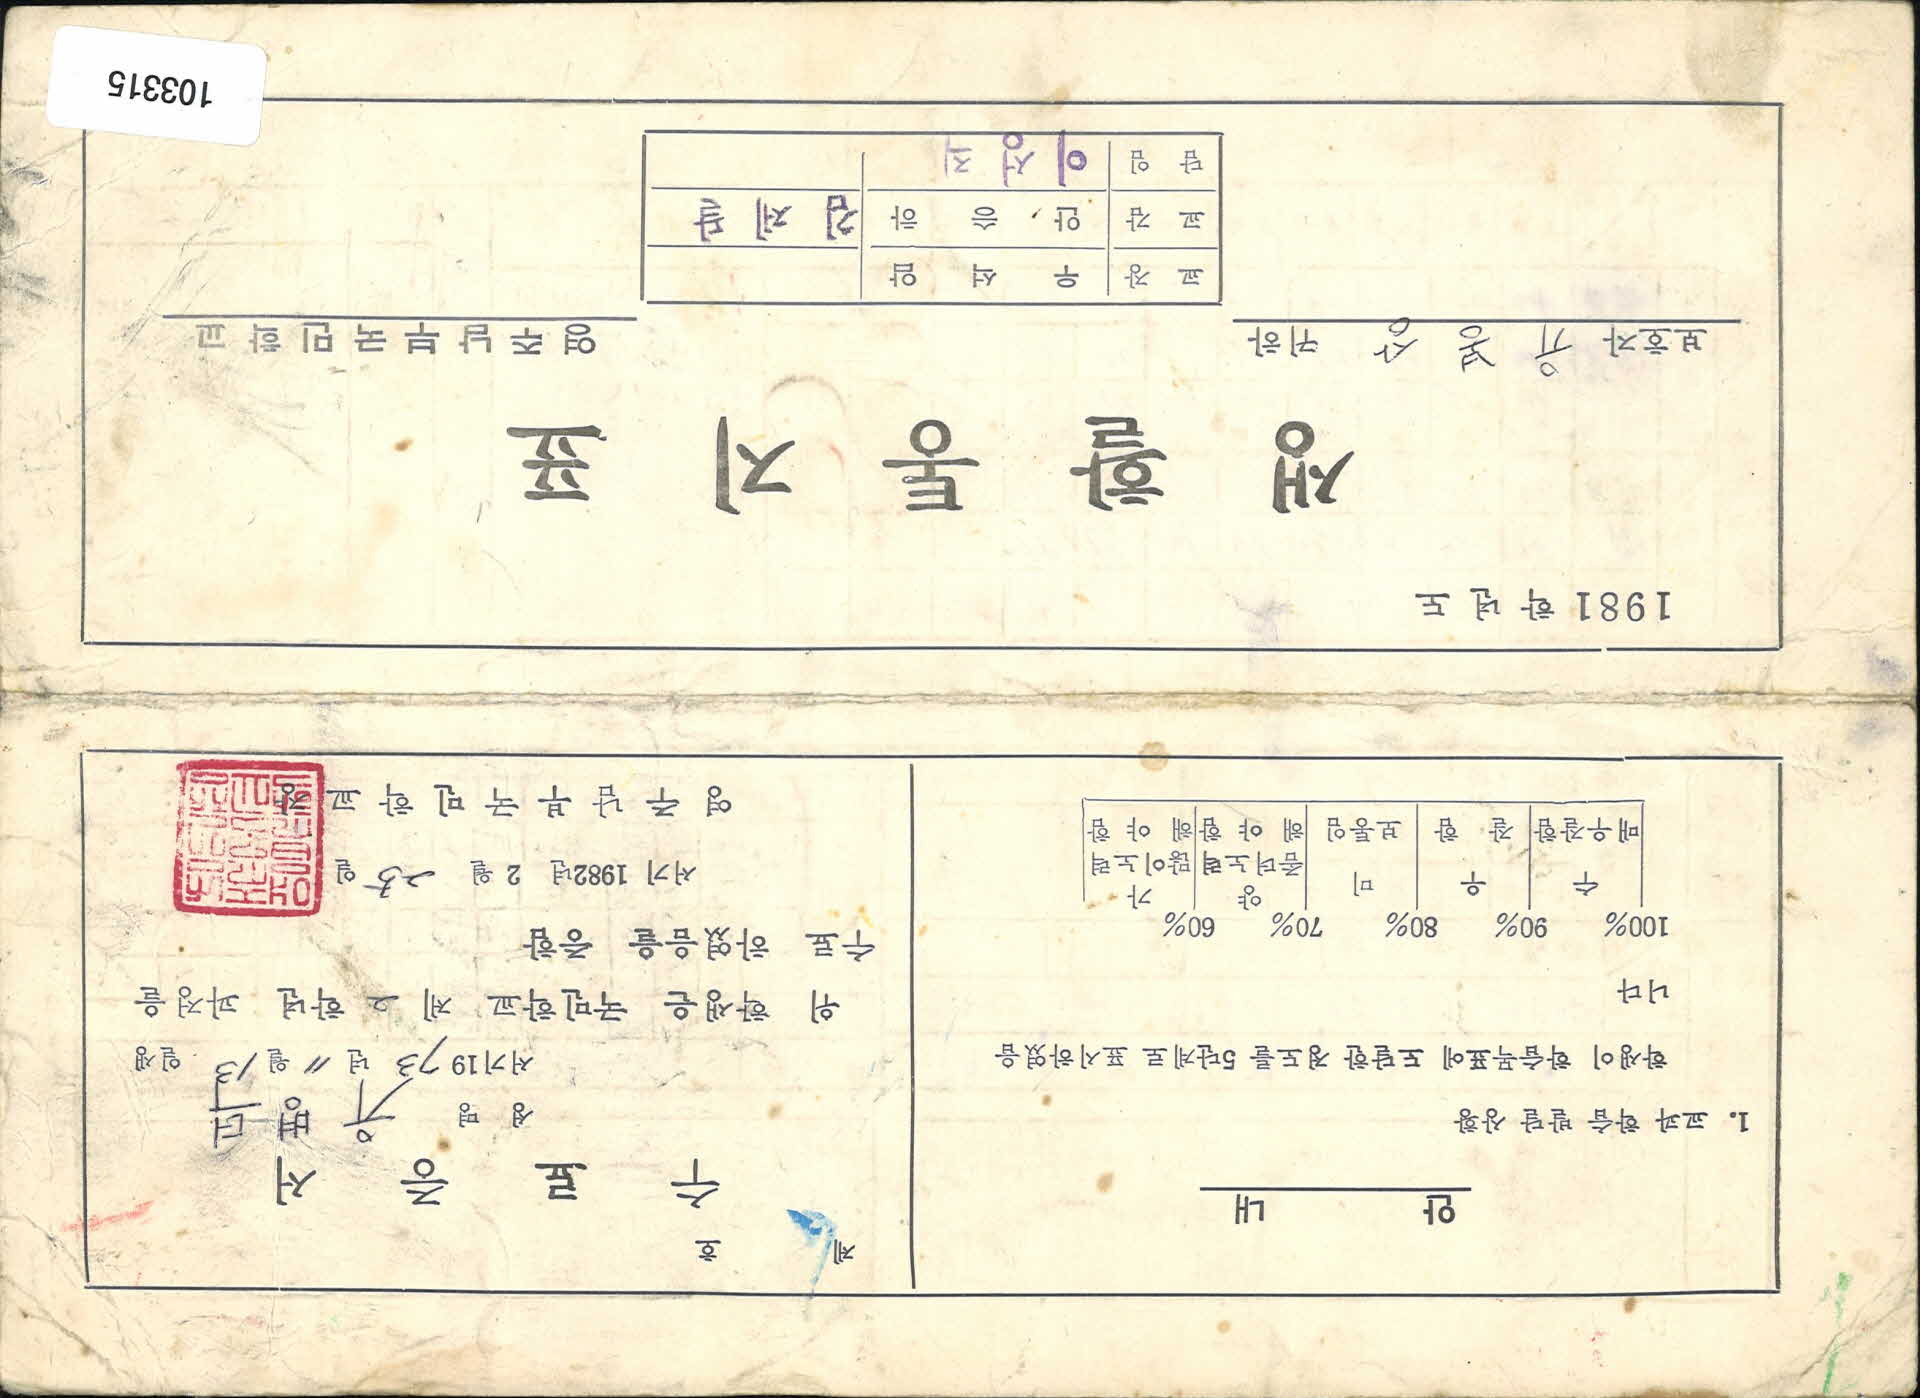 안 내
1. 교과 학습 발달 상황
학생이 학습목표에 도달한 정도를 5단계로 표시하였습
니다
100% 90% 80% 70% 60%
수 우 미 양 가
매우잘함 잘 함 보통임 좀더노력해야함 많이노력해야함
제 호
수 료 증 서
성 명 유 병
서기1973년 11월 13일생
위 학생은 국민학교 제 2 학년 과정을
수료 하였음을 증함
서기 1982년 2월 25일
영주남부국민학교장
1981학년도
생 활 통 지 표
보호자 유 봉 상 귀하
영주남부국민학교
교 장 우 석 암
교 감 안 승 하 김 제 달
담 임
103315